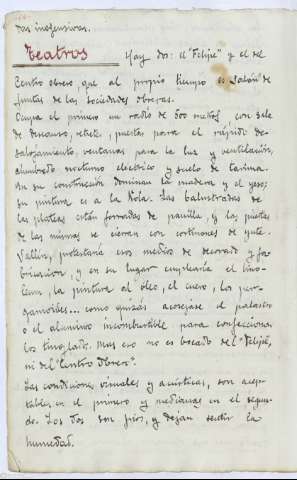 das inofensivas.
Teatros Hay dos: el "Felipe" y el del
Centro obrero, que al propio tiempo es salón de
juntas de las sociedades obreras.
Ocupa el primero un radio de dos metros, con sala
de descanso, retrete, puertas para el rápido de-
salojamiento, ventanas para la luz y ventilación,
alumbrado nocturno eléctrico y suelo de tarima.
En su construcción dominan la madera y el yeso;
su pintura es a la cola. Las balaustradas de
las plateas están forradas de panilla, y las puertas
de las mismas se cierran con cortinones de yute.
Vallin, protestaría esos medios de decorado y fa-
bricación, y en su lugar emplearía el lino-
leum, la pintura al óleo, el cuero, los per-
gamoides... como quizás aconsejase el palastro
o el aluminio incombustible, para confeccionar
los tinglados. Mas eso no es bocado del "Felipe",
ni del "Centro Obrero".
Las condiciones visuales y acústicas, son acep-
tables en el primero y medianas en el segun-
do. Los dos son fríos, y dejan sentir la
humedad.